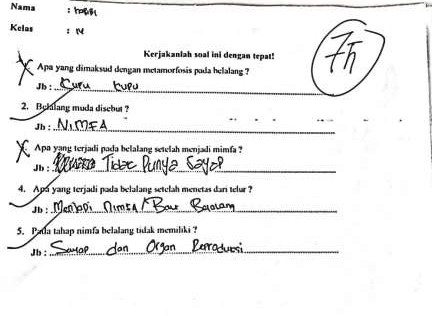 Nama :
Kelas : IV
75
Kerjakanlah soal ini dengan tepat!
Apa yang dimaksud dengan metamorfosis pada belalang ?
Jb : Kupu kupu
2. Belalang muda disebut ?
Jb : NiMFA
Apa yang terjadi pada belalang setelah menjadi mimfa ?
Jb : Tidac Punya Sayap
4. Apa yang terjadi pada belalang setelah menetas dari telur ?
Jb : Menjadi nimfa /
5. Pada tahap nimfa belalang tidak memiliki ?
Jb : Sayap dan Organ Reproduksi